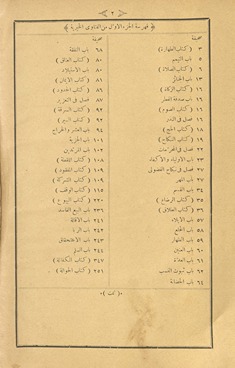 ٢
﴿ فهرسة الجزء الاول من الفتاوى الخيرية ﴾
صحيفة
٣ ( كتاب الطهارة )
٥ باب التيمم
٦ ( كتاب الصلاة )
باب الجنائز
( كتاب الزكاة )
باب صدقة الفطر
( كتاب الصوم )
فصل في النذر
( كتاب الحج )
( كتاب النكاح )
فصل في المحرمات
باب الاولياء والاكفاء
فصل في نكاح الفضولي
٢٧ باب المهر
٣٤ باب القسم
٣٥ ( كتاب الرضاع )
٣٦ ( كتاب الطلاق )
٥٧ باب الايلاء
٥٨ باب الخلع
٥٩ باب الظهار
٦٠ باب العنين
٦١ باب العدة
٦٢ باب ثبوت النسب
٦٤ باب الحضانة
صحيفة
٦٨ باب النفقة
٨٠ ( كتاب العتاق )
٨٠ باب الاستيلاد
٨١ ( كتاب الايمان )
٨٦ ( كتاب الحدود )
٨٧ فصل في التعزير
٩٢ ( كتاب السرقة )
٩٢ ( كتاب السير )
٩٤ باب العشر والخراج
١٠١ باب الجزية
١٠٢ باب المرتدين
١٠٨ ( كتاب اللقطة )
١٠٩ ( كتاب المفقود )
١٠٩ ( كتاب الشركة )
١١٥ ( كتاب الوقف )
٢٢٠ ( كتاب البيوع )
باب البيع الفاسد
باب الاقالة
باب الربا
باب الاستحقاق
باب السلم
( كتاب الكفالة )
٢٥٦ ( كتاب الحوالة )
( تمت )